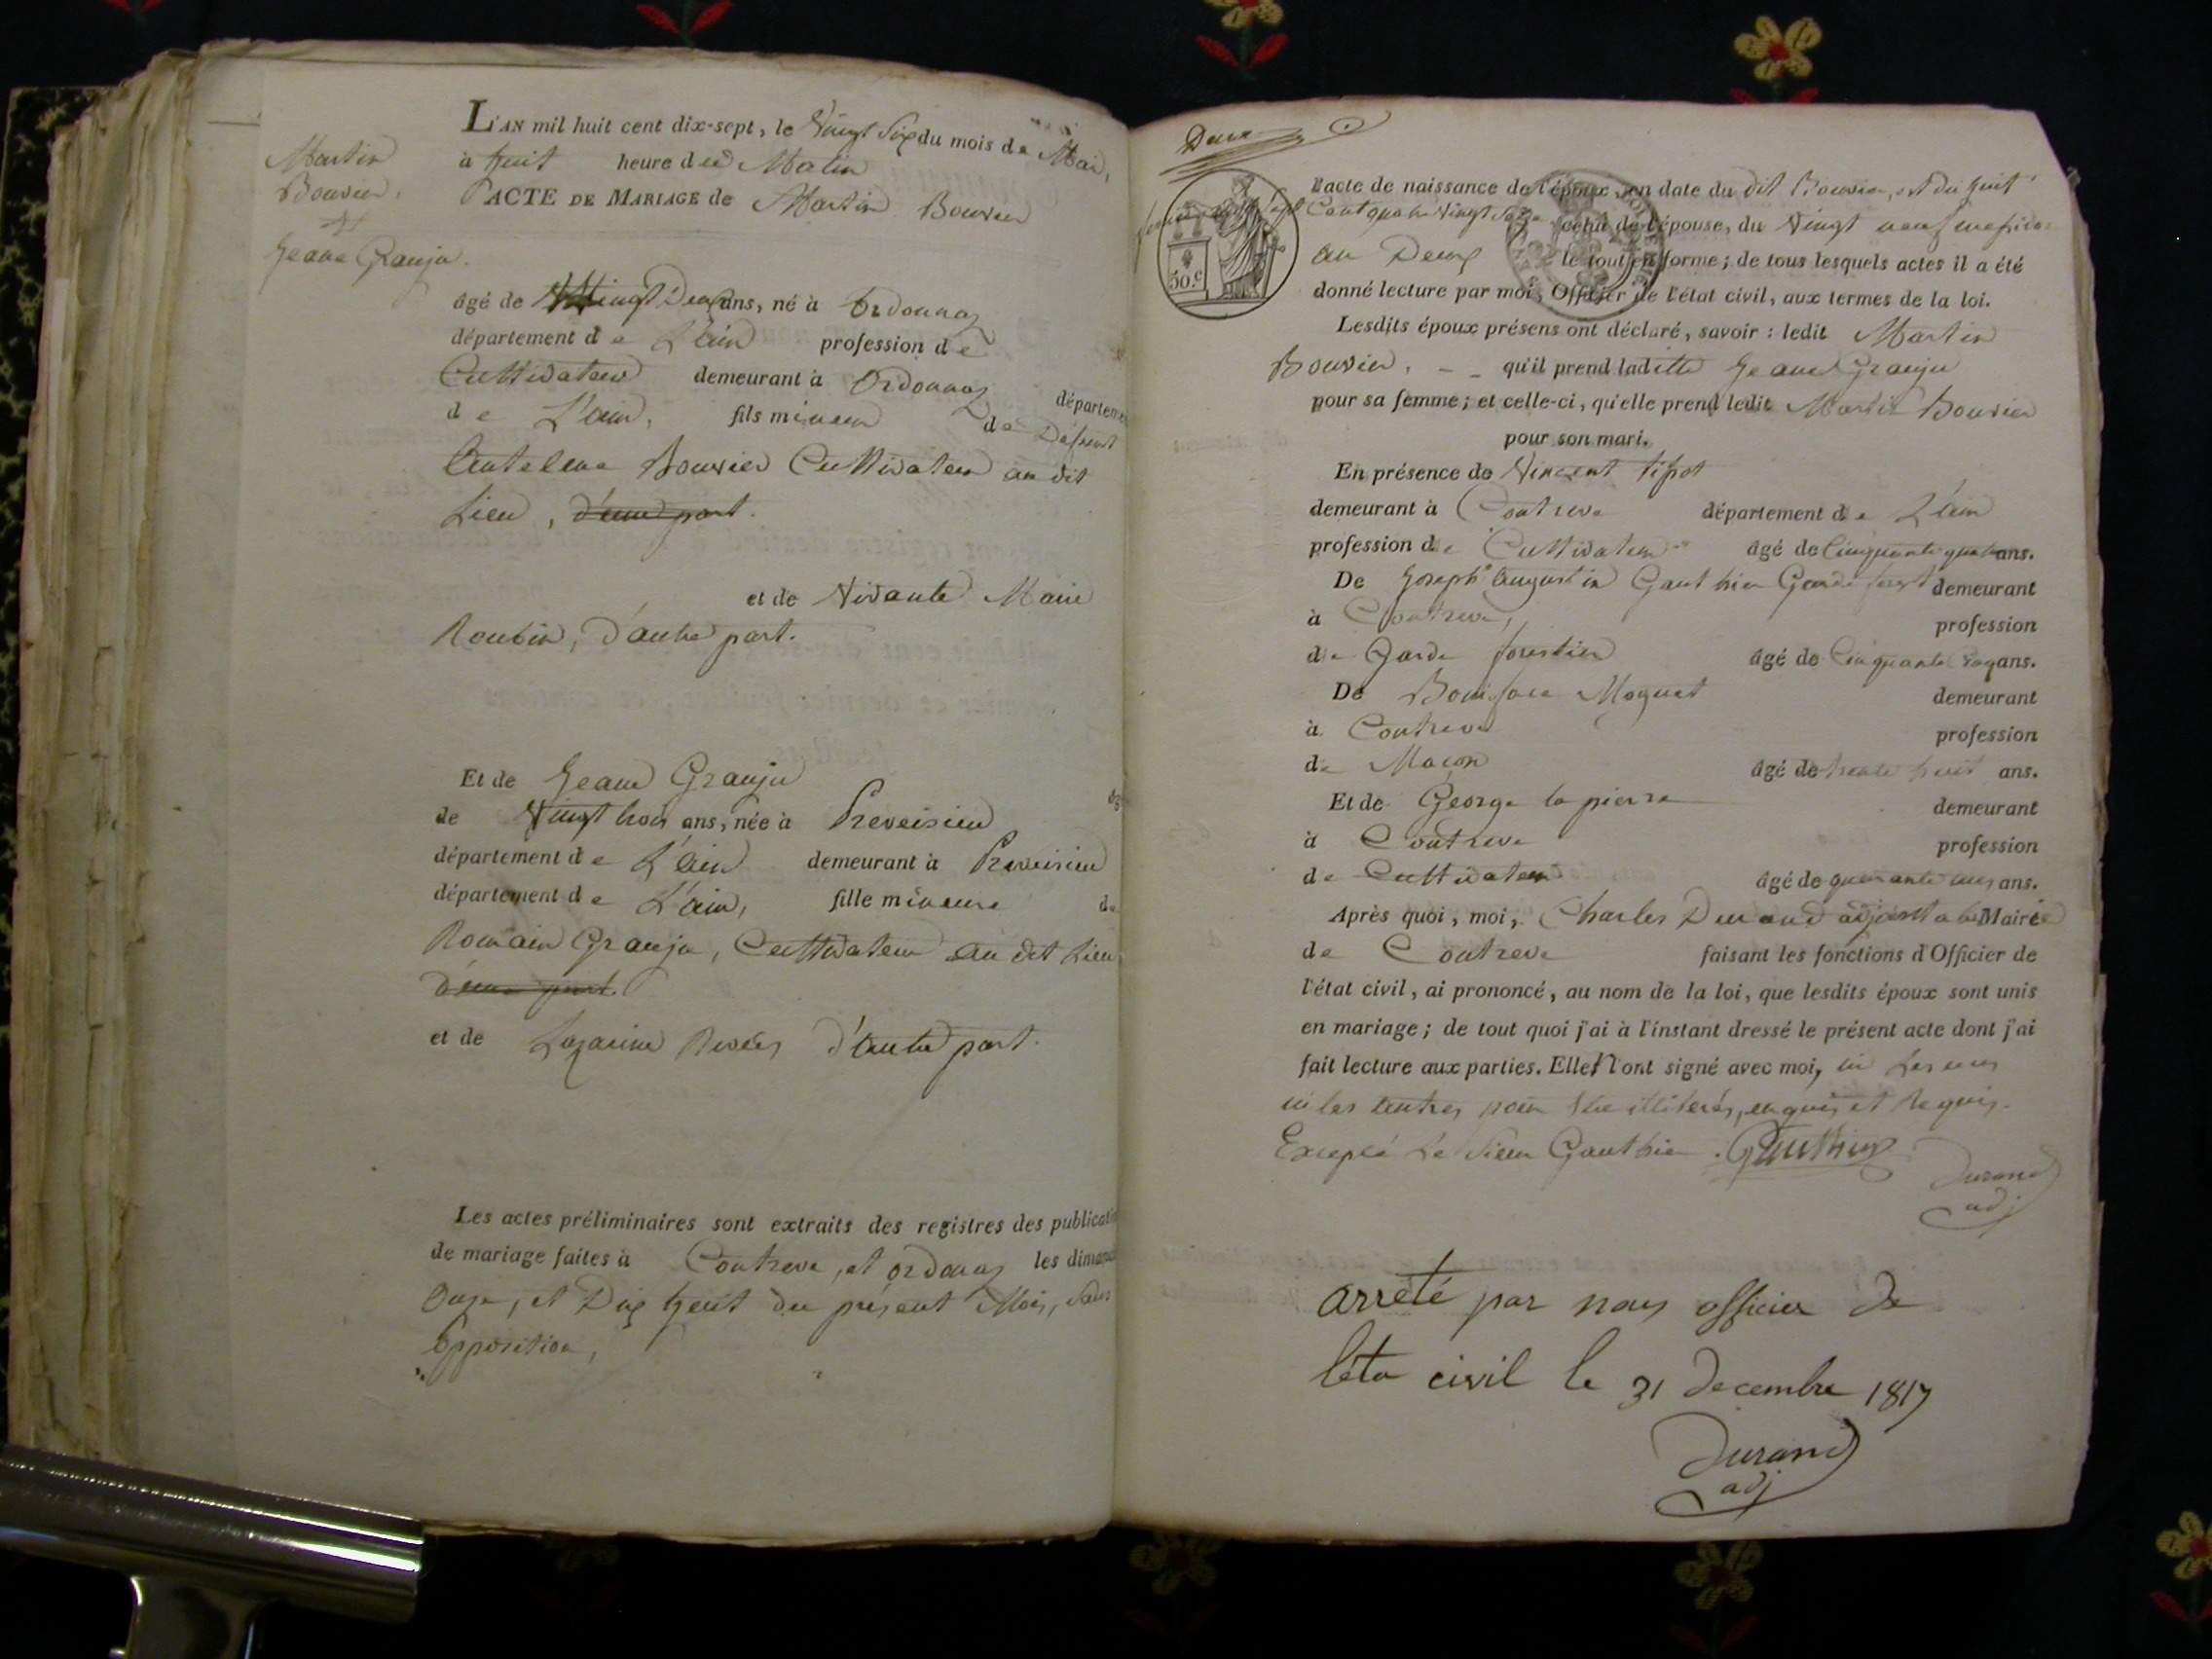 Martin
Bouvier,
et
Jeane Granju.
L'AN mil huit cent dix-sept, le Vingt Six du mois de Mai,
à huit heure du Matin
ACTE DE MARIAGE de Martin Bouvier
âgé de Vingt Deux ans, né à Ordonnaz
département de L'ain profession de
Cultivateur demeurant à Ordonnaz département
de L'ain, fils mineur de Défunt
Antelme Bouvier Cultivateur au dit
Lieu, d'une part.
et de Vivante Marie
Roubin, d'autre part.
Et de Jeane Granju
de Vingt trois ans, née à Preveisieu
département de L'ain demeurant à Preveisieu
département de L'ain, fille mineure de
Romain Granju, Cultivateur au dit Lieu
d'une part.
et de Lazarine d'autre part.
Les actes préliminaires sont extraits des registres des publications
de mariage faites à Contreve, et Ordonnaz les dimanches
Onze, et Dix huit du présent Mois, sans
Opposition,
Deux
50.c
l'acte de naissance de l'époux, en date du dit Bouvier, est du huit
Cent quatre Vingt celui de l'épouse, du Vingt neuf
an Deux le tout en forme; de tous lesquels actes il a été
donné lecture par moi, Officier de l'état civil, aux termes de la loi.
Lesdits époux présens ont déclaré, savoir: ledit Martin
Bouvier, qu'il prend ladite Jeane Granju
pour sa femme; et celle-ci, qu'elle prend ledit Martin Bouvier
pour son mari.
En présence de Vincent
demeurant à Contreve département de L'ain
profession de Cultivateur âgé de Cinquante quatre ans.
De Joseph Augustin Gauthier Garde forest demeurant
à Contreve, profession
de Garde forestier âgé de Cinquante ans.
De Boniface Moguet demeurant
à Contreve profession
de Maçon âgé de trente huit ans.
Et de George la pierre demeurant
à Contreve profession
de Cultivateur âgé de quarante ans.
Après quoi, moi, Charles Durand adjoint a la Mairie
de Contreve faisant les fonctions d'Officier de
l'état civil, ai prononcé, au nom de la loi, que lesdits époux sont unis
en mariage; de tout quoi j'ai à l'instant dressé le présent acte dont j'ai
fait lecture aux parties. Elles n'ont signé avec moi, ni Les uns
ni les autres pour être illiterés, enquis et Requis.
Excepté Le Sieur Gauthier. Gauthier
Durand
adj
arrêté par nous officier de
léta civil le 31 decembre 1817
Durand
adj